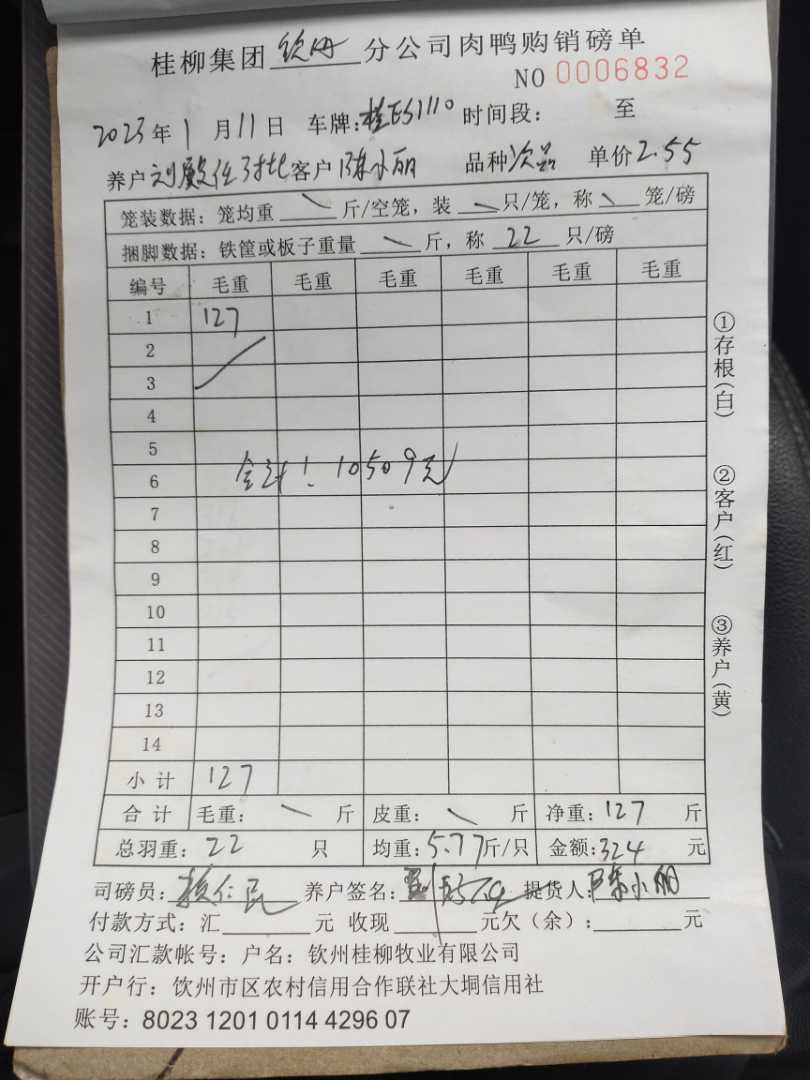 桂柳集团钦州分公司肉鸭购销磅单
NO 0006832
2023年1月11日 车牌:桂E51110 时间段: 至
养户 对比 客户 陈小丽 品种 次品 单价 2.55
笼装数据:笼均重 \ 斤/空笼,装 \ 只/笼,称 \ 笼/磅
捆脚数据:铁筐或板子重量 \ 斤,称 22 只/磅
编号 毛重 毛重 毛重 毛重 毛重 毛重
1 127
2
3
4
5
6
合计:10509元
7
8
9
10
11
12
13
14
小计 127
合计 毛重: \ 斤 皮重: \ 斤 净重:127 斤
总羽重:22 只 均重:5.77斤/只 金额:324 元
司磅员: 养户签名: 提货人:陈小丽
付款方式:汇 元 收现 元欠(余): 元
公司汇款帐号:户名:钦州桂柳牧业有限公司
开户行:钦州市区农村信用合作联社大垌信用社
账号:8023 1201 0114 4296 07
①存根(白)
②客户(红)
③养户(黄)